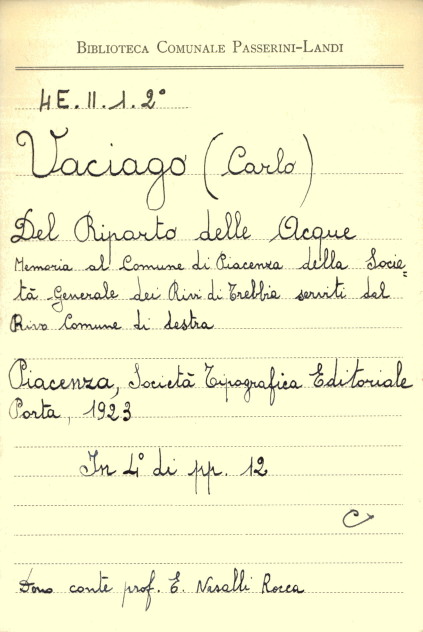 BIBLIOTECA COMUNALE PASSERINI-LANDI
4E.II.1.2°
Vaciago (Carlo)
Del Riparto delle Acque
Memoria al Comune di Piacenza della Socie=
tà Generale dei Rivi di Trebbia serviti dal
Rivo Comune di destra
Piacenza, Società Tipografica Editoriale
Porta, 1923
In 4° di pp. 12
C
Dono conte prof. E. Nasalli Rocca